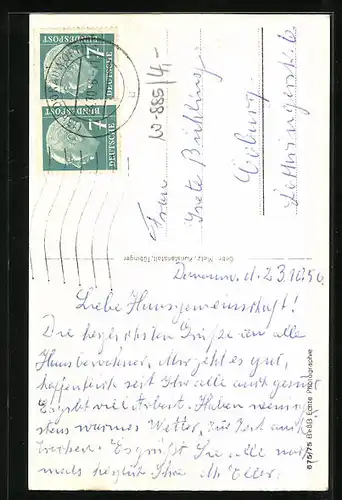 7
DEUTSCHE
BUNDESPOST
7
DEUTSCHE
BUNDESPOST
W-885/4,-
Frau
Grete
Coburg
Lothringerstraße
Gebr. Metz, Kunstanstalt, Tübingen
d. 23.10.56
Liebe Hausgemeinschaft!
Die herzlichsten Grüße an alle
Hausbewohner, Mir geht es gut,
hoffentlich seit Ihr alle auch gesund
Es gibt viel Arbeit. Haben wenig-
stens warmes Wetter, zur Zeit auch
trocken. Es grüßt Sie alle noch
mals herzlich Ihre
675/75 BxBG Echte Photographie